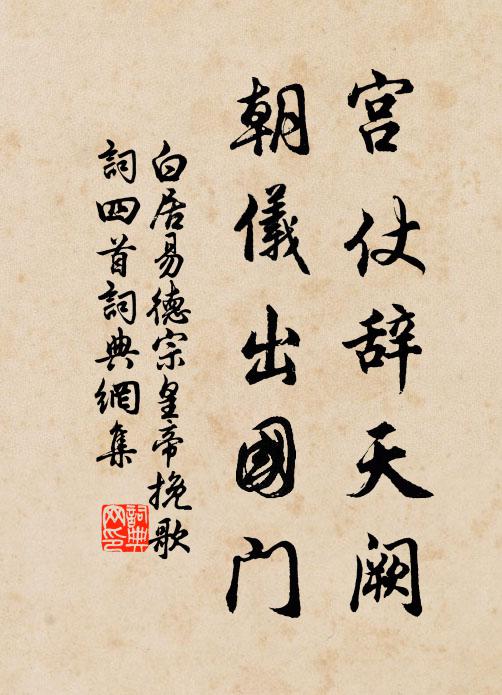 宫仗辞天阙
朝儀出國门
白居易德宗皇帝挽歌
詞四首詞典網集
詞典网印